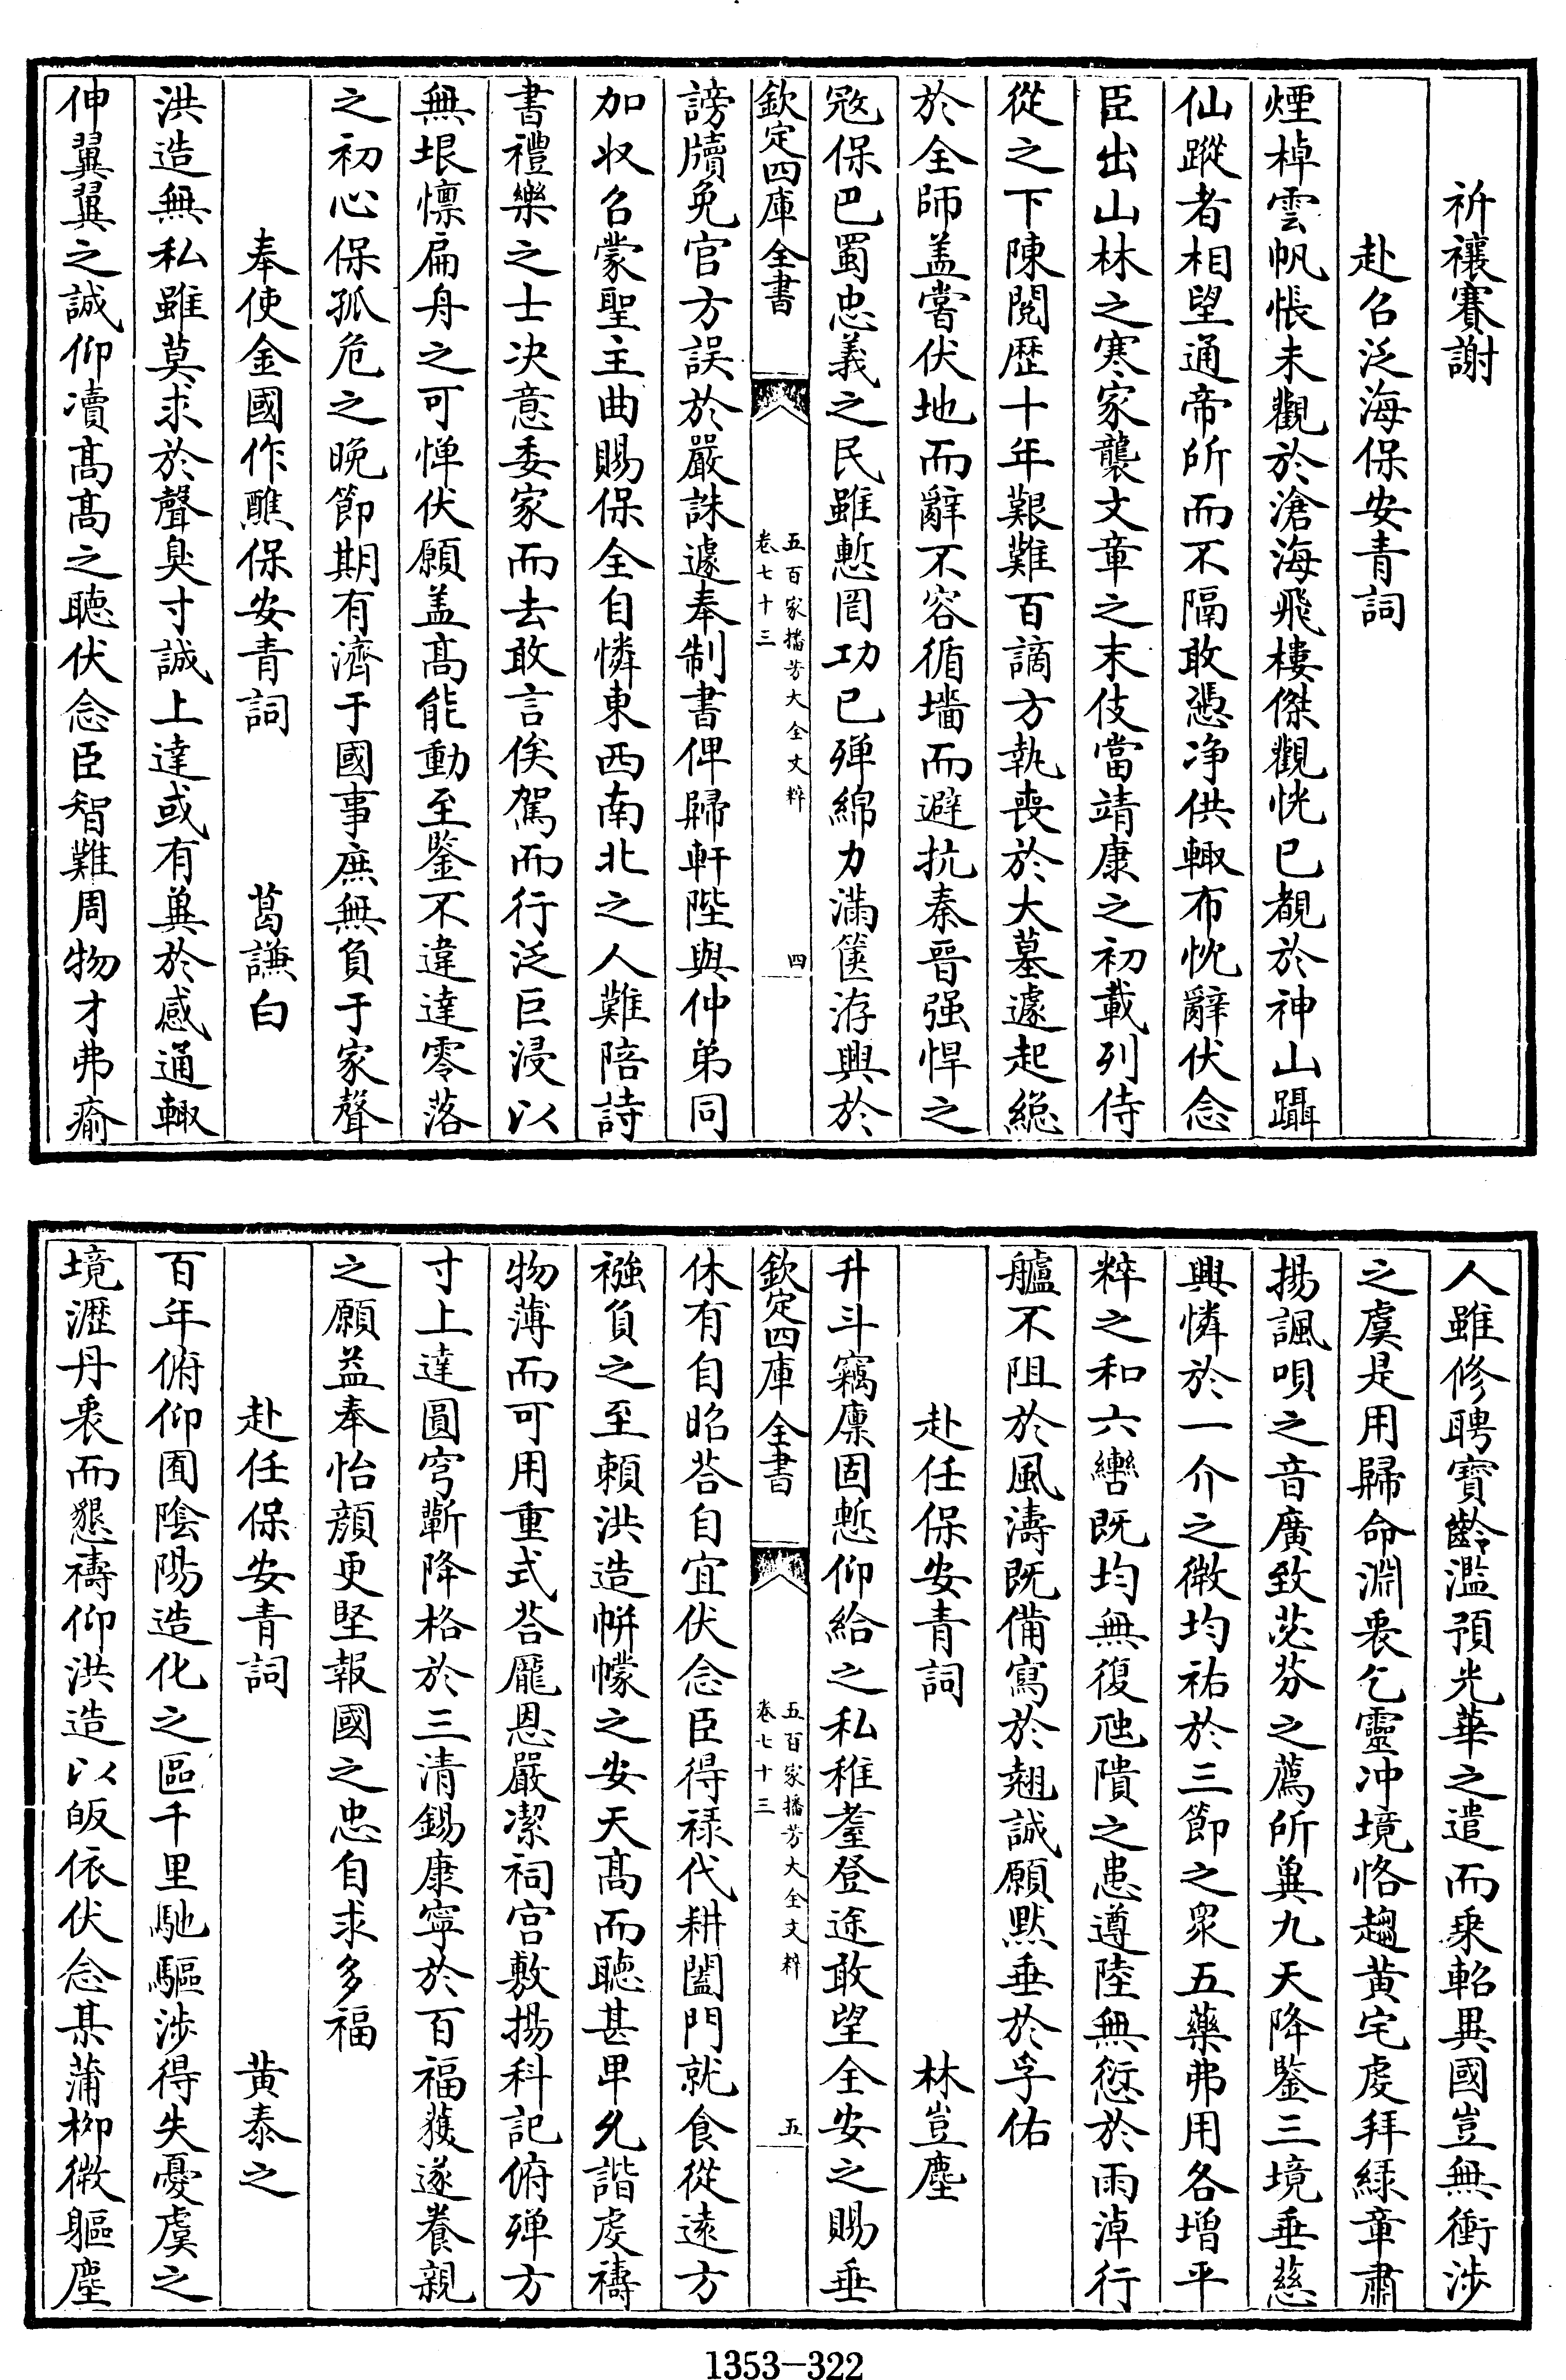 祈禳賽謝
赴召泛海保安青詞
煙棹雲帆悵未觀於滄海飛樓傑觀恍已覩於神山躡
仙蹤者相望通帝所而不隔敢憑净供輙布忱辭伏念
臣出山林之寒家襲文章之末伎當靖康之初載列侍
從之下陳閱歴十年艱難百謫方執喪於大墓遽起緫
於全師盖嘗伏地而辭不容循墻而避抗秦晉强悍之
冦保巴蜀忠義之民雖慙罔功已殫綿力滿篋洊興於
欽定四庫全書
五百家播芳大全文粹
卷七十三
四
謗牘免官方誤於嚴誅遽奉制書俾歸軒陛與仲弟同
加収召蒙聖主曲賜保全自憐東西南北之人難陪詩
書禮樂之士决意委家而去敢言俟駕而行泛巨浸以
無垠懔扁舟之可憚伏願盖髙能動至鑒不違達零落
之初心保孤危之晚節期有濟于國事庶無負于家聲
奉使金國作醮保安青詞 葛謙白
洪造無私雖莫求於聲臭寸誠上達或有兾於感通輙
伸翼翼之誠仰凟髙髙之聽伏念臣智難周物才弗瘉
人雖修聘寳齡濫預光華之遣而乗軺異國豈無衝涉
之虞是用歸命淵衷乞靈冲境恪趨黄宅䖍拜緑章肅
揚諷唄之音廣致苾芬之薦所兾九天降鑒三境垂慈
興憐於一介之微均祐於三節之衆五藥弗用各增平
粹之和六轡既均無復虺隤之患遵陸無愆於雨淖行
艫不阻於風濤既備寫於翹誠願黙垂於孚佑
赴任保安青詞 林豈塵
升斗竊廪固慙仰給之私稚耋登途敢望全安之賜垂
欽定四庫全書
五百家播芳大全文粹
卷七十三
五
休有自昭荅自宜伏念臣得禄代耕闔門就食從逺方
襁負之至頼洪造帡幪之安天髙而聽甚卑允諧䖍禱
物薄而可用重式荅龎恩嚴潔祠宫敷揚科記俯殫方
寸上達圓穹蘄降格於三清錫康寧於百福獲遂養親
之願益奉怡顔更堅報國之忠自求多福
赴任保安青詞 黄泰之
百年俯仰囿陰陽造化之區千里馳驅涉得失憂虞之
境瀝丹衷而懇禱仰洪造以皈依伏念某蒲栁微軀塵
1353—322